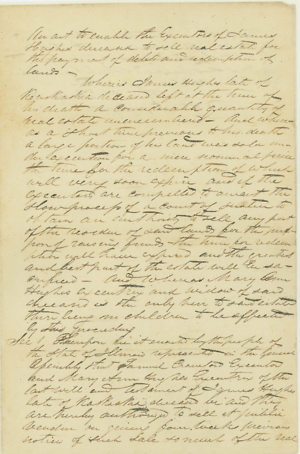 An act to enable the Executors of James
Hughes deceased to sell real estate for
the payment of debts and redemption of
lands
Whereas James Hughes late of
Kaskaskia deceased left at the time of
his death a considerable quantity of
real estate unencumbered - And whereas
as a short time previous to his death
a large portion of his land was sold un
the execution for a mere nominal price
the time for the redemption of which
will very soon expire and if the
executors are compelled to await the
slow process of a court of
of them are to sell any part
of the residue of said lands for the pur
pose of raising funds the time for redem
will have expired and the greatest
and best part of the estate will be sa
crificed - And Whereas Mary Ann
Hughes Executrix and widow of said
deceased is the only heir to said estate
there being no children to be affected
by this proceeding
Sec 1 Therefore be it enacted by the people of
the State of Illinois represented in the General
Assembly that Samuel Executor
and Mary Ann Hughes Executrix of the
last will and testament of James Hughes
late of Kaskaskia deceased be and they
are hereby authorized to sell at public
vendue on giving four weeks previous
notice of such sale so much of the real